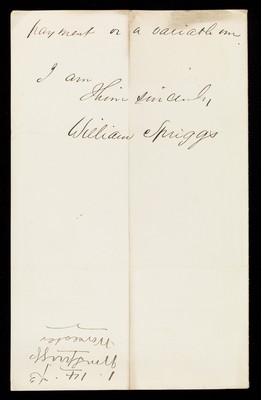 payment or a variable one.
I am
Thine sincerely,
William Spriggs
Wm Spriggs
Worcester